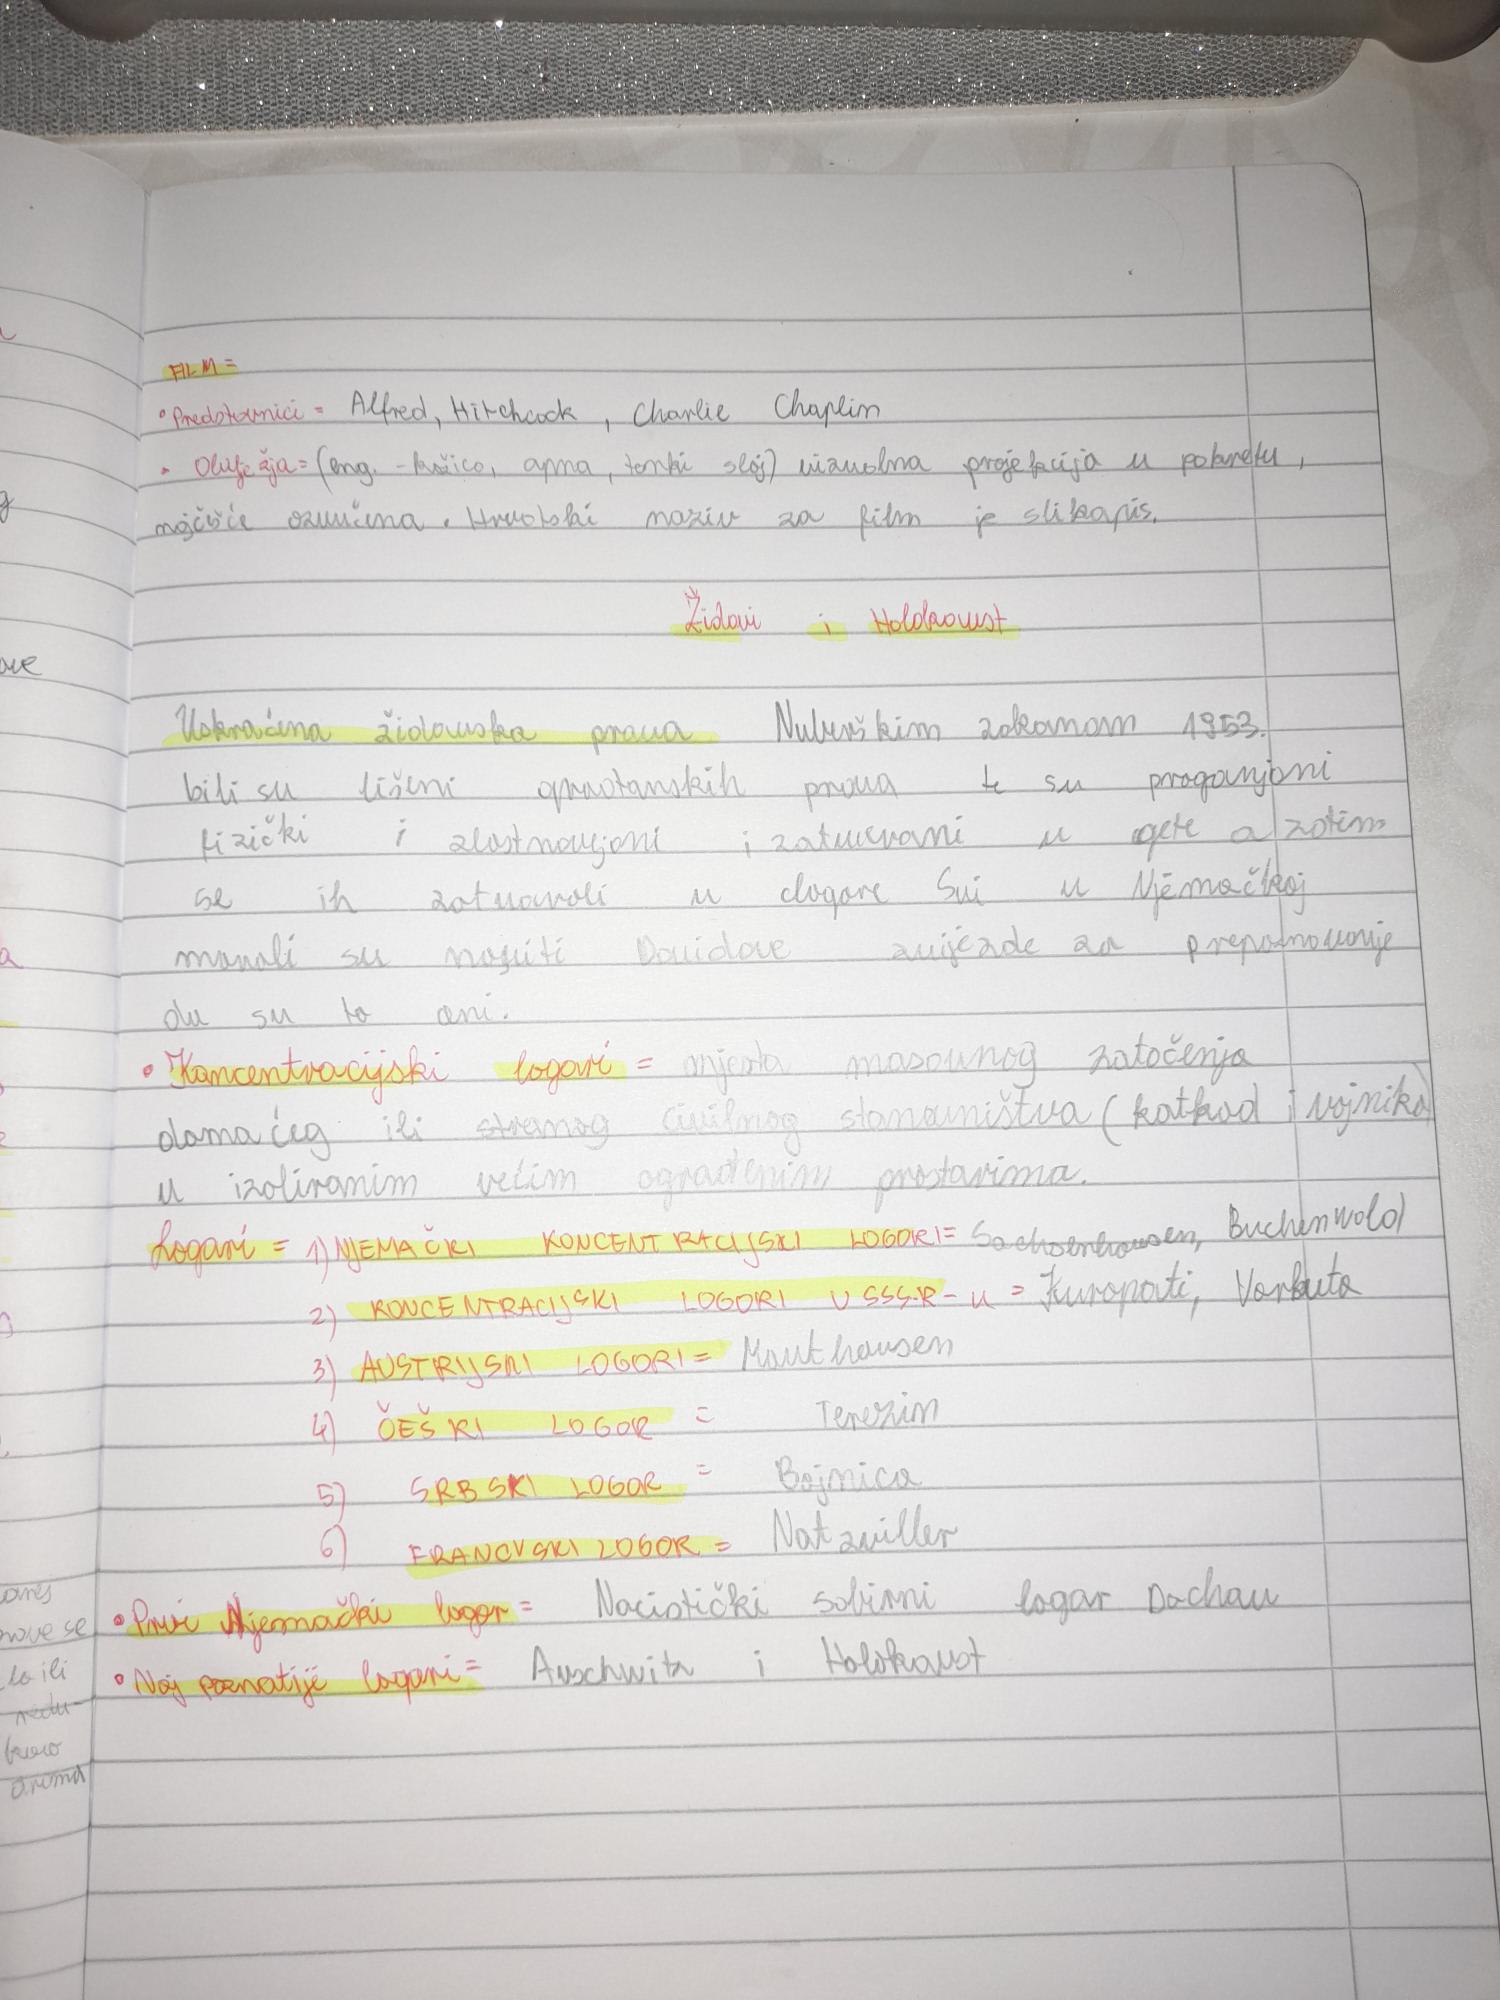 FILM =
• Predstavnici = Alfred, Hitchcock, Charlie Chaplin
• (eng. - kožica, opna, tonki sloj) vizualna projekcija u pokretu,
najčešće ozvučena. Hrvatski naziv za film je slikapis.
Židovi i Holokaust
Uskraćena židovska prava Nuberškim zakonom 1953.
bili su lišeni građanskih prava te su proganjani
fizički i zlostavljani i zatvarani u gete a zatim
se ih zatvarali u logore Svi u Njemačkoj
morali su nositi Davidove zvijezde za prepoznavanje
da su to oni.
• Koncentracijski logori = mjesta masovnog zatočenja
domaćeg ili stranog civilnog stanovništva (katkad i vojnika)
u izoliranim većim ograđenim prostorima.
Logori = 1) NJEMAČKI KONCENTRACIJSKI LOGORI = Sachsenhausen, Buchenwald
2) KONCENTRACIJSKI LOGORI U SSSR-u = Kuropati, Vorkuta
3) AUSTRIJSKI LOGORI = Mauthausen
4) ČEŠKI LOGOR = Terezin
5) SRBSKI LOGOR = Bojnica
6) FRANCUSKI LOGOR = Natzwiller
• Prvi Njemački logor = Nacistički sabirni logor Dachau
• Naj poznatije logori = Auschwitz i Holokaust
ove
nove se
la ili